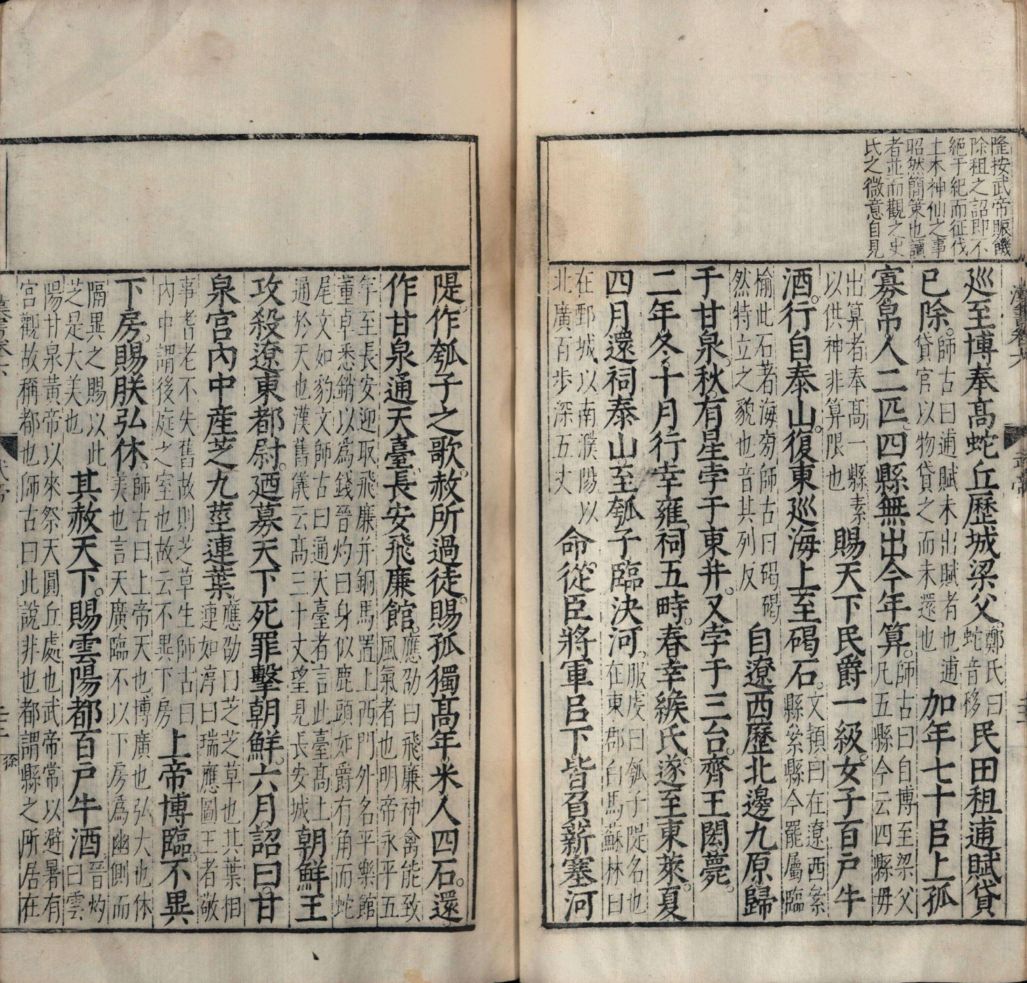 隆按武帝賑饑
除租之詔即不
絕于紀而征伐
土木神仙之事
昭然簡策也讀
者並而觀之史
氏之微意自見
巡至博奉高蛇丘歷城梁父鄭氏曰蛇音移民田租逋賦貸
已除師古曰逋賦未出賦者也逋貸官以物貸之而未還也加年七十㠯上孤
寡帛人二匹四縣無出今年算師古曰自博至梁父凡五縣今云四縣毋
出算者奉高一縣素以供神非算限也賜天下民爵一級女子百戶牛
酒行自泰山復東巡海上至碣石文穎曰在遼西絫縣絫縣今罷屬臨
榆此石著海旁師古曰碣碣然特立之貌也音其列反自遼西歷北邊九原歸
于甘泉秋有星孛于東井又孛于三台齊王閎薨
二年冬十月行幸雍祠五畤春幸緱氏遂至東萊夏
四月還祠泰山至瓠子臨決河服虔曰瓠子隄名也在東郡白馬蘇林曰
在鄄城以南濮陽以北廣百步深五丈命從臣將軍㠯下皆負薪塞河
隄作瓠子之歌赦所過徒賜孤獨高年米人四石還
作甘泉通天臺長安飛廉館應劭曰飛廉神禽能致風氣者也明帝永平五
年至長安迎取飛廉并銅馬置上西門外名平樂館董卓悉銷以爲錢晉灼曰身似鹿頭如爵有角而蛇
尾文如豹文師古曰通天臺者言此臺高上通於天也漢舊儀云高三十丈望見長安城朝鮮王
攻殺遼東都尉廼募天下死罪擊朝鮮六月詔曰甘
泉宮內中產芝九莖連葉應劭曰芝芝草也其葉相連如淳曰瑞應圖王者敬
事耆老不失舊故則芝草生師古曰內中謂後庭之室也故云不異下房上帝博臨不異
下房賜朕弘休師古曰上帝天也博廣也弘大也休美也言天廣臨不以下房爲幽側而
隔異之賜以此芝是大美也其赦天下賜雲陽都百戶牛酒晉灼曰雲
陽甘泉黃帝以來祭天圓丘處也武帝常以避暑有宮觀故稱都也師古曰此說非也都謂縣之所居在